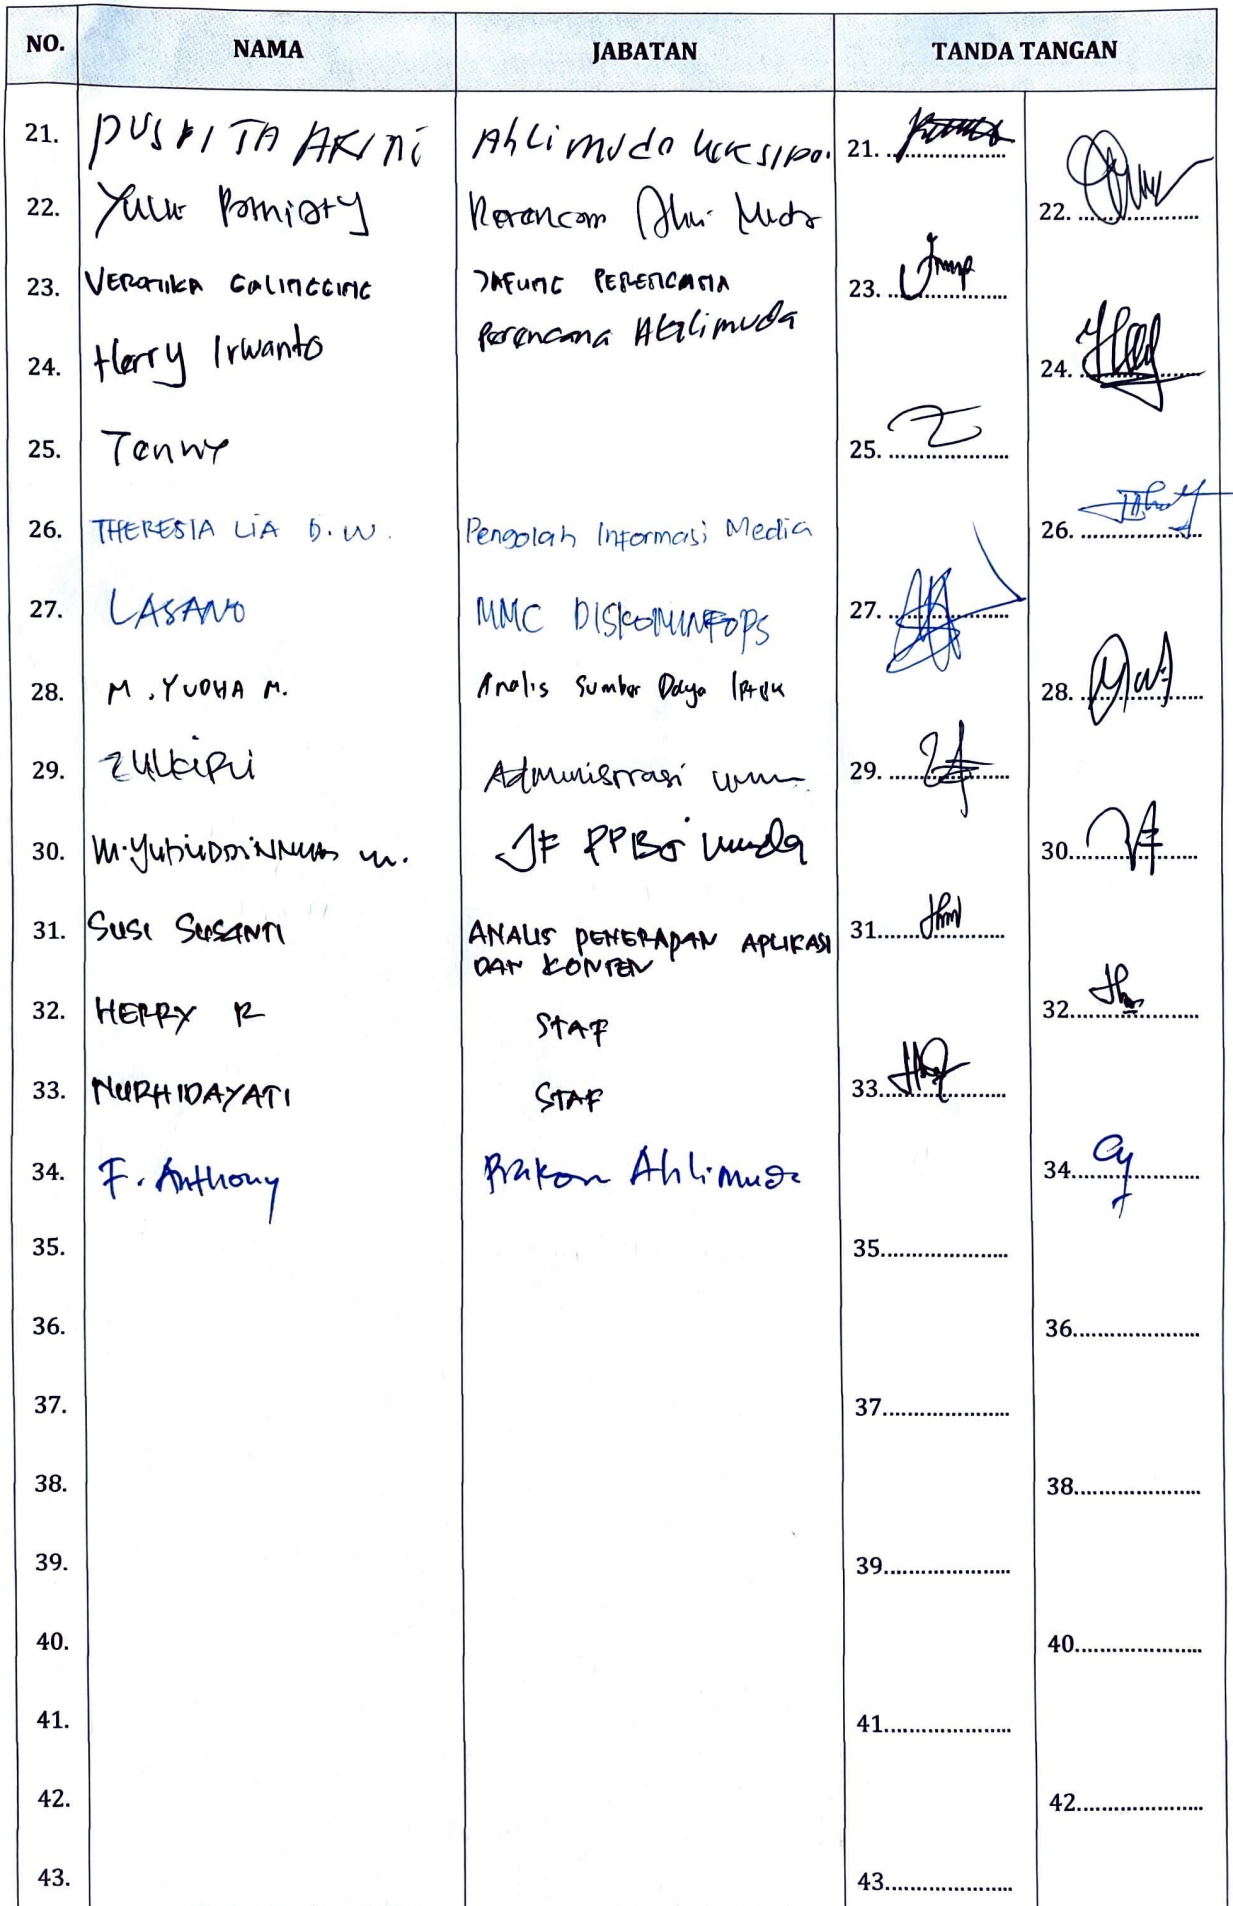 NO. NAMA JABATAN TANDA TANGAN
21. PUSPITA AKINI Ahli muda 21. ....................
22. Yulie Perencana Ahli Muda 22. ....................
23. VERONIKA GALINGGING JAFUNG PERENCANA 23. ....................
24. Herry Irwanto Perencana Ahlimuda 24. ....................
25. Tenny 25. ....................
26. THERESIA LIA D.W. Pengolah Informasi Media 26. ....................
27. LASANO MMC DISKOMINFOPS 27. ....................
28. M. YUDHA M. Analis Sumber Daya Iptek 28. ....................
29. ZULKIPLI Administrasi umum 29. ....................
30. M. JF PPBJ Muda 30. ....................
31. SUSI SUSANTI ANALIS PENERAPAN APLIKASI 31. ....................
DAN KONTEN
32. HERRY R STAF 32. ....................
33. NURHIDAYATI STAF 33. ....................
34. F. Anthony Prakom Ahlimuda 34. ....................
35. 35. ....................
36. 36. ....................
37. 37. ....................
38. 38. ....................
39. 39. ....................
40. 40. ....................
41. 41. ....................
42. 42. ....................
43. 43. ....................